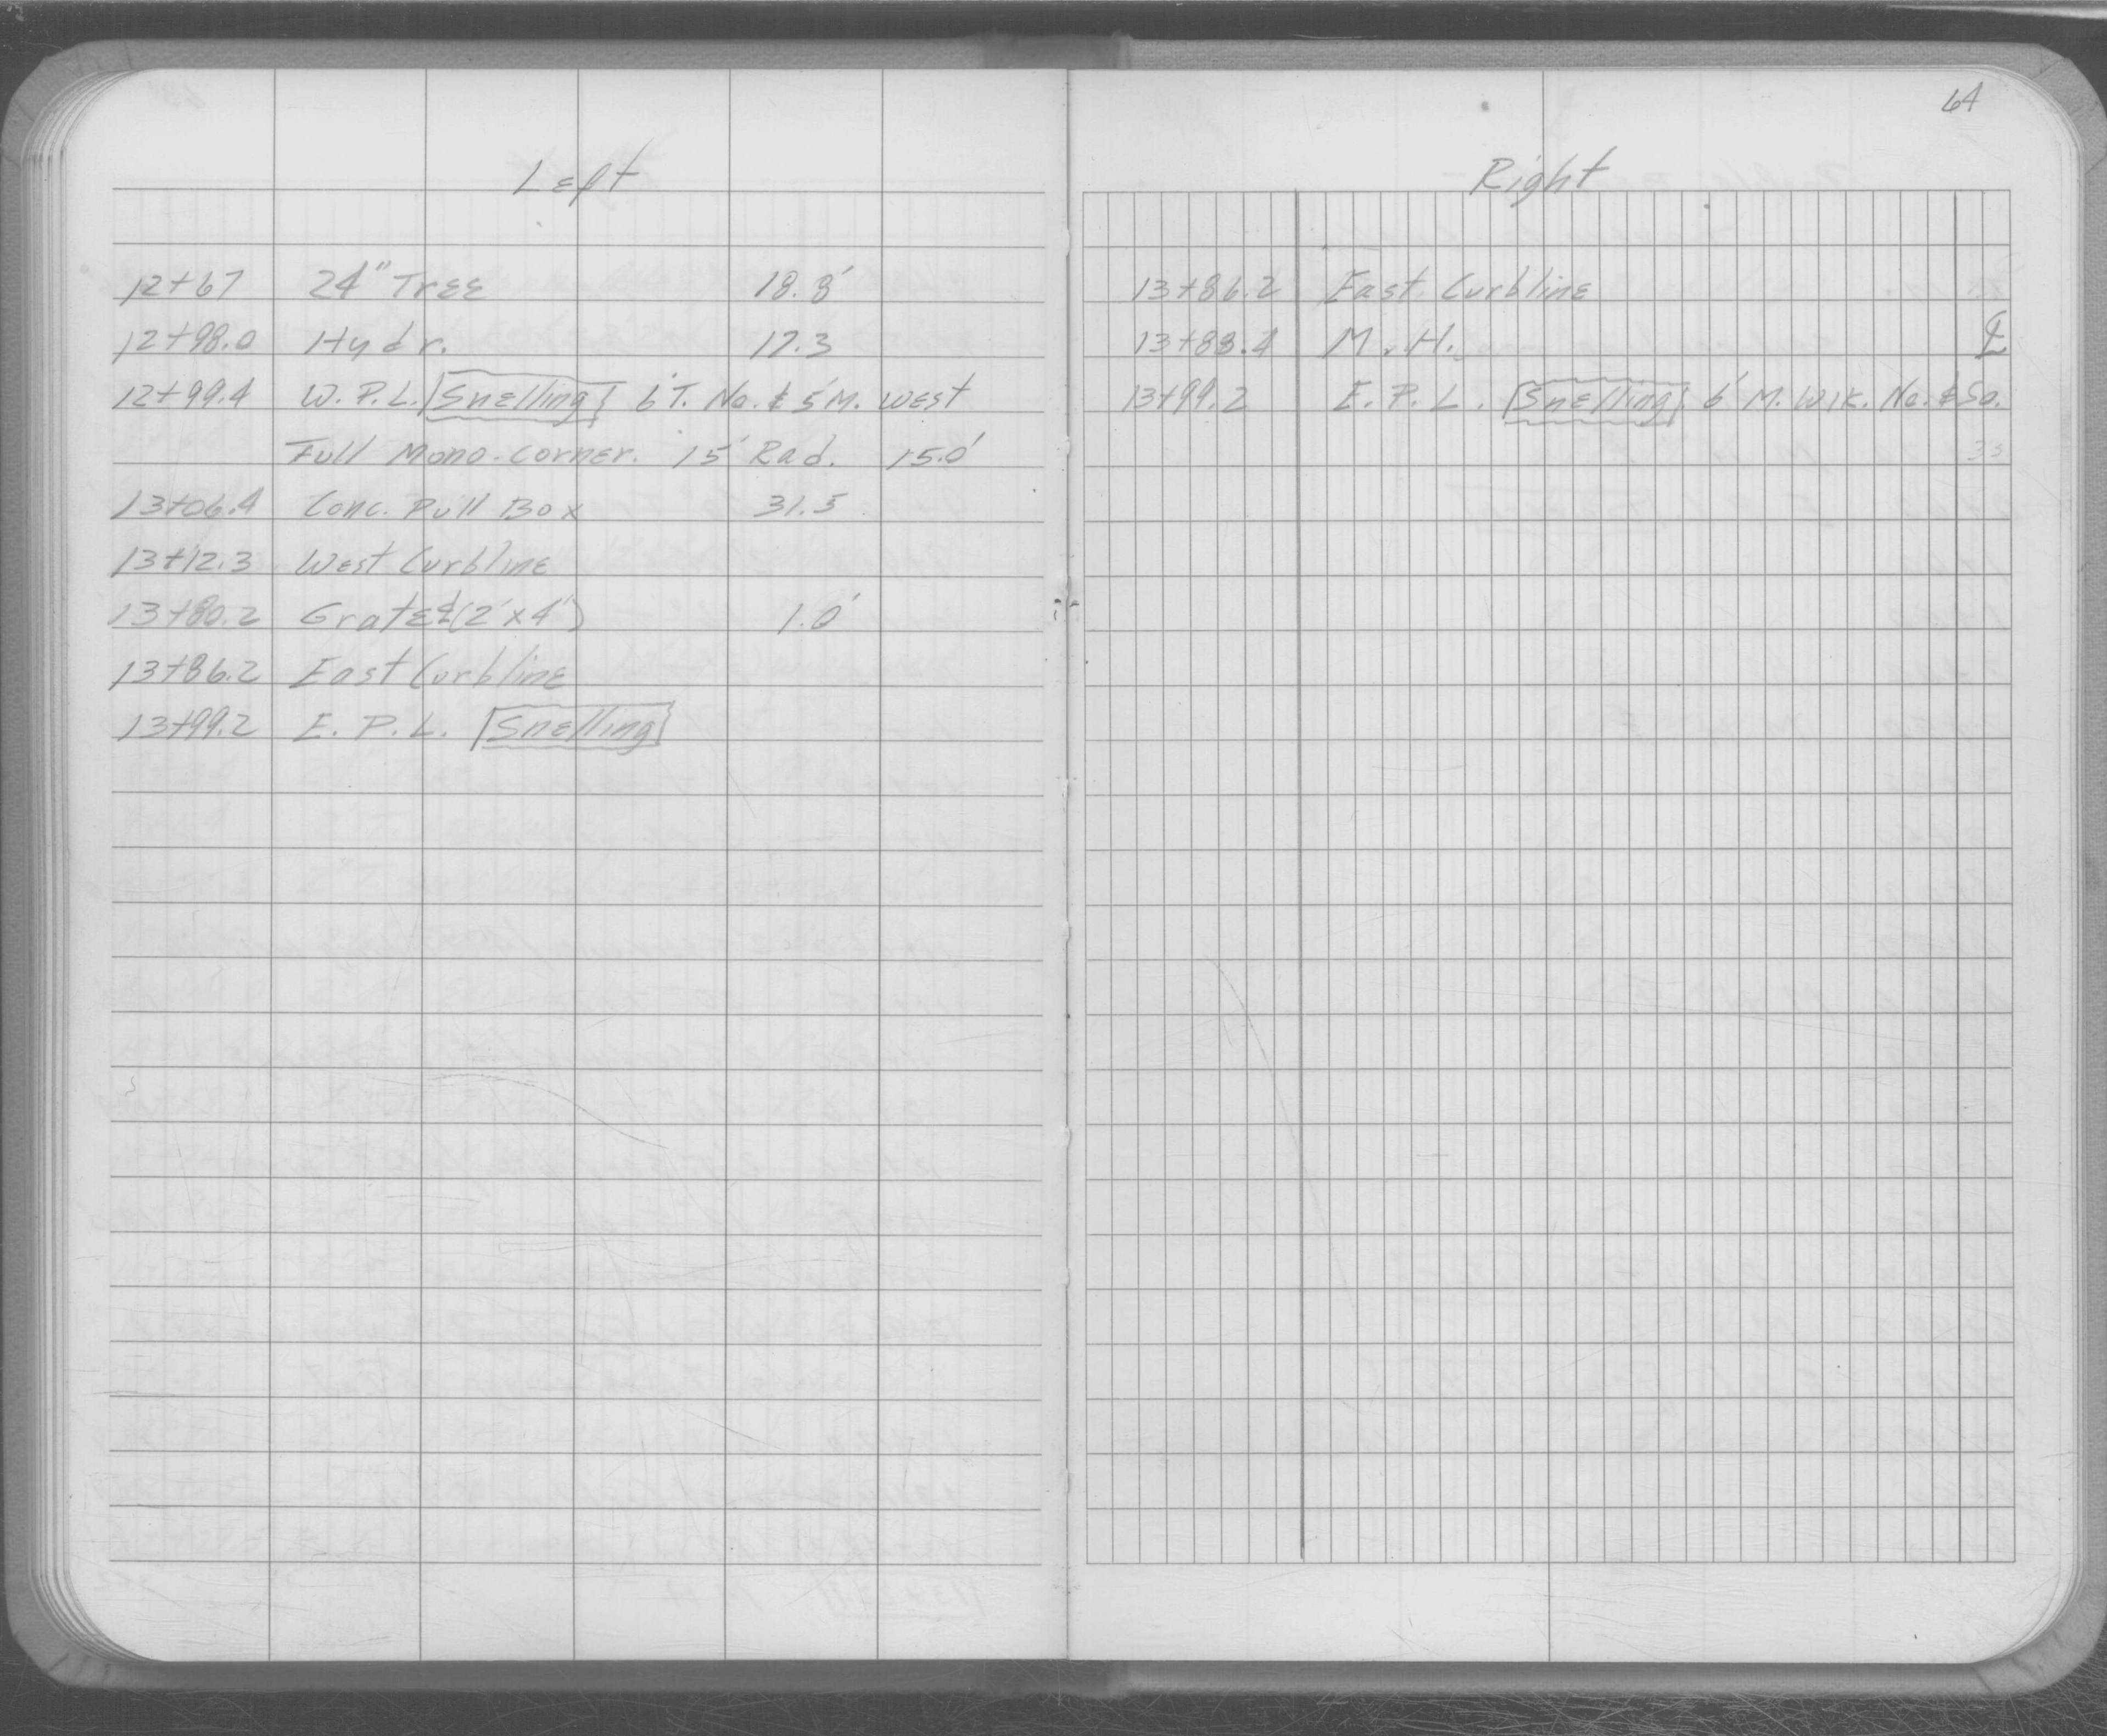 64
Left
12+67 24" Tree 18.8'
12+98.0 Hydr. 17.3
12+99.4 W.P.L. Snelling 6' T. No. & 5' M. West
Full Mono. Corner. 15' Rad. 15.0'
13+06.4 Conc. Pull Box 31.5
13+12.3 West Curbline
13+80.2 Grate ℄ (2'x4') 1.0'
13+86.2 East Curbline
13+99.2 E.P.L. Snelling
Right
13+86.2 East Curbline
13+88.4 M.H. ℄
13+99.2 E.P.L. Snelling 6' M. Wlk. No. & So.